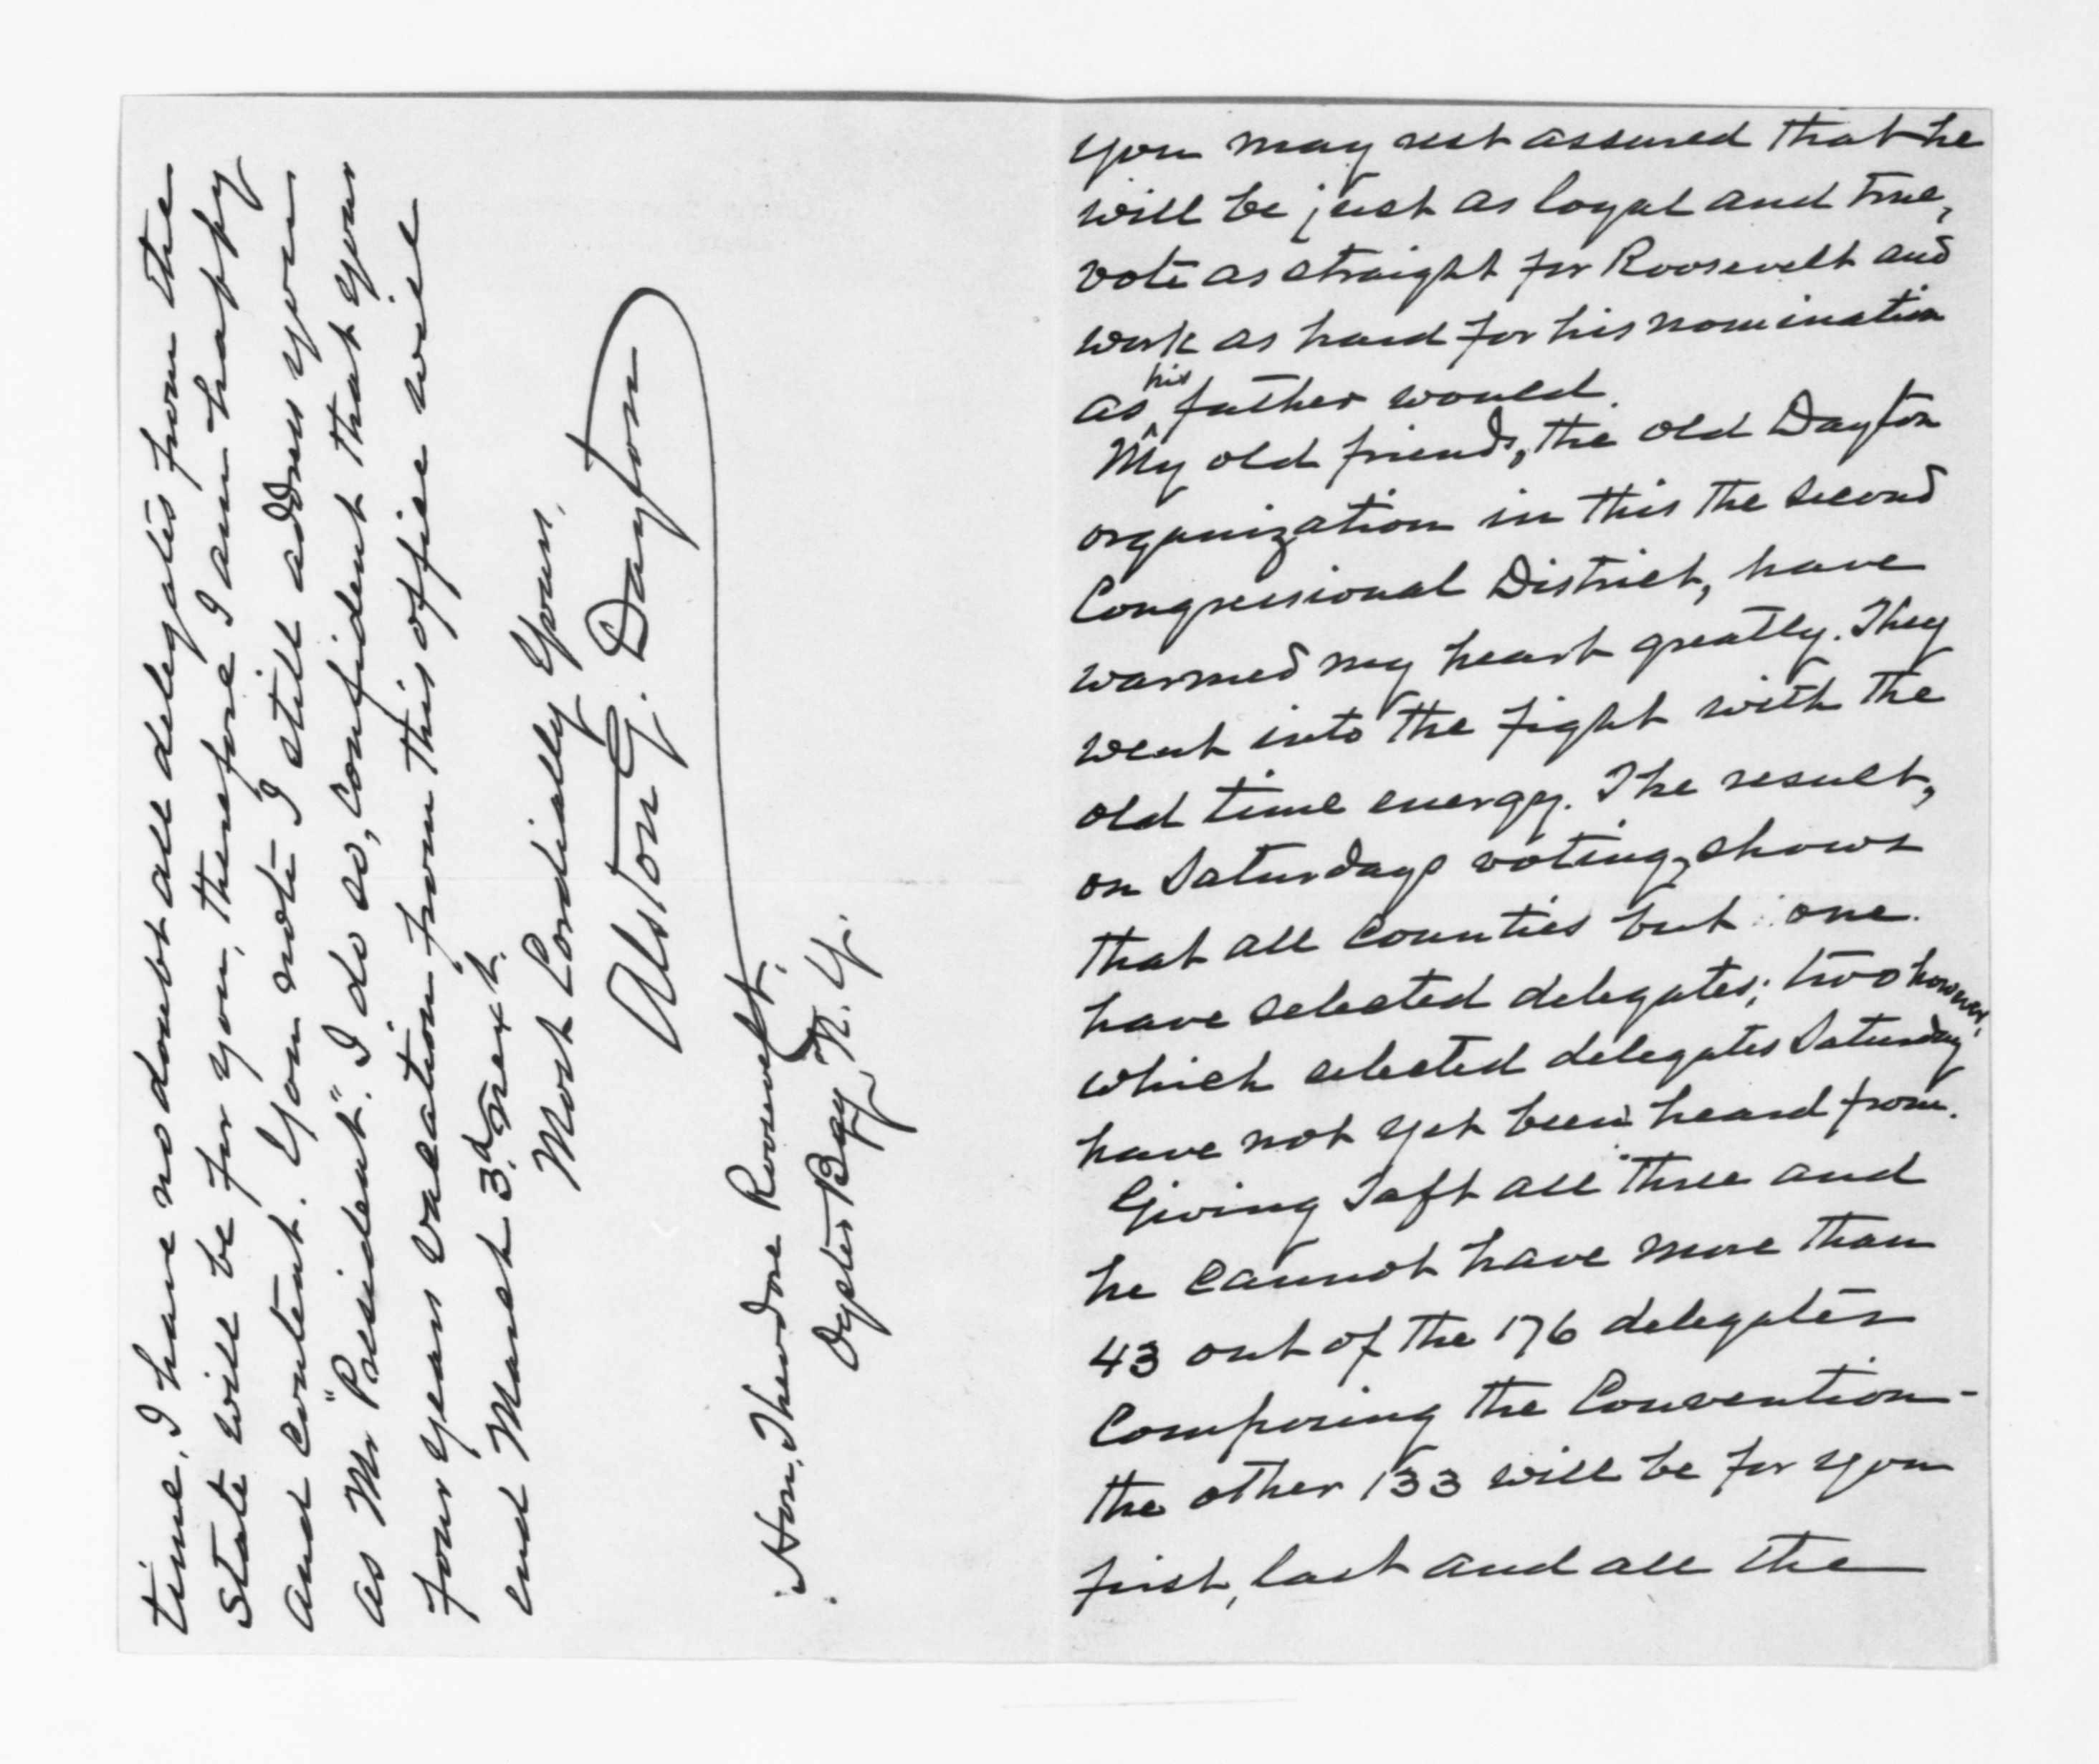 you may rest assured that he
will be just as loyal and true,
vote as straight for Roosevelt and
work as hard for his nomination
as his father would.
My old friends, the old Dayton
organization in this the second
Congressional District, have
warmed my heart greatly. They
went into the fight with the
old time energy. The result,
on Saturdays voting, shows
that all Counties but one
have selected delegates; two however,
which selected delegates Saturday
have not yet been heard from.
Giving Taft all three and
he cannot have more than
43 out of the 176 delegates
Composing the Convention -
the other 133 will be for you
first, last and all the
time. I have no doubt all delegates from the
State will be for you, therefore I am happy
and content. You note I still address you
as Mr "President". I do so, confident that your
four years vacation from this office will
end March 3d next.
Most Cordially Yours,
Alston G. Dayton
Hon. Theodore Roosevelt,
Oyster Bay, N. Y.